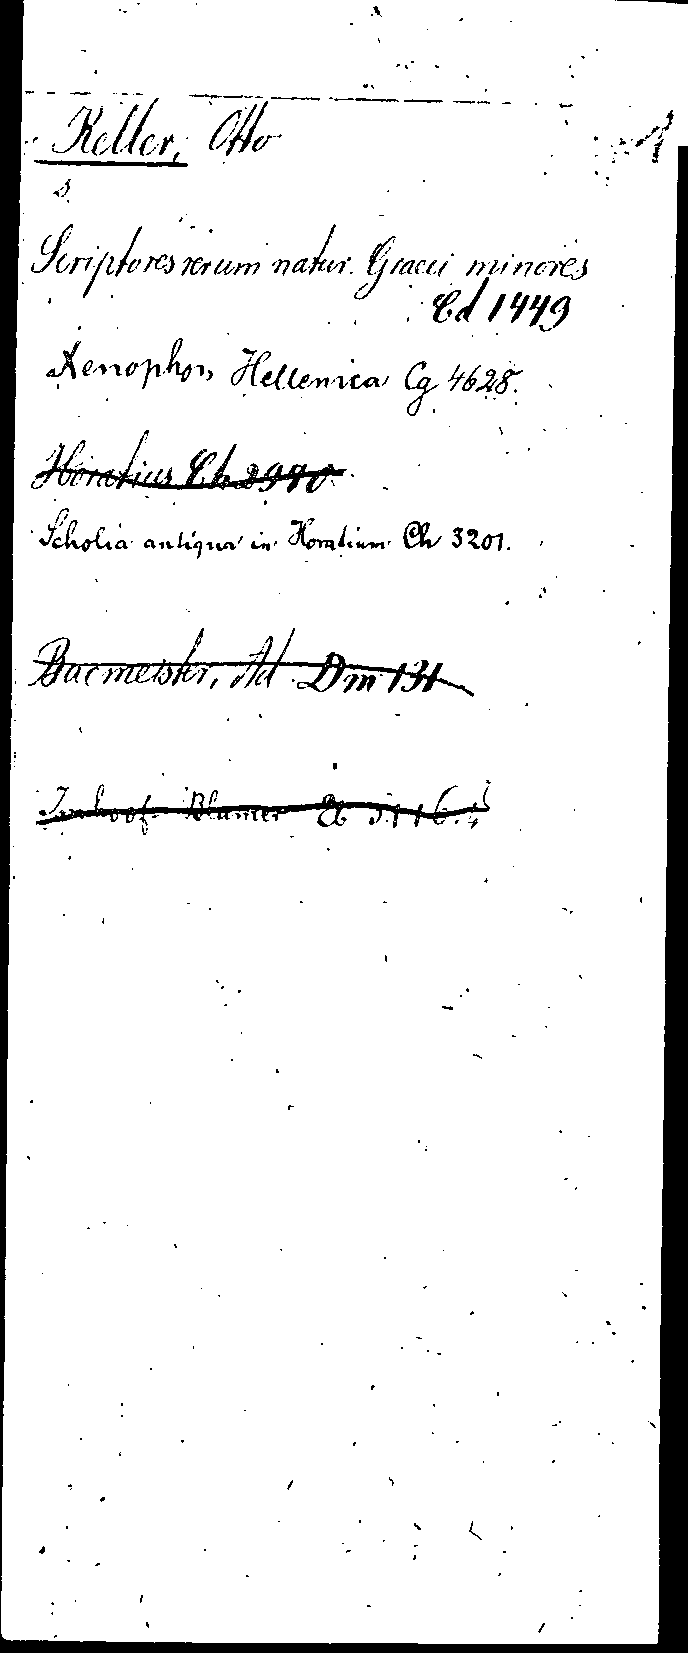 Keller, Otto
s.
Scriptores rerum natur. Graeci minores
Cd 1449
Xenophon, Hellenica Cg 4628.
Horatius Ch 2990
Scholia antiqua in Horatium Ch 3201.
Bacmeister, Ad Dm 131
Imhoof Blumer